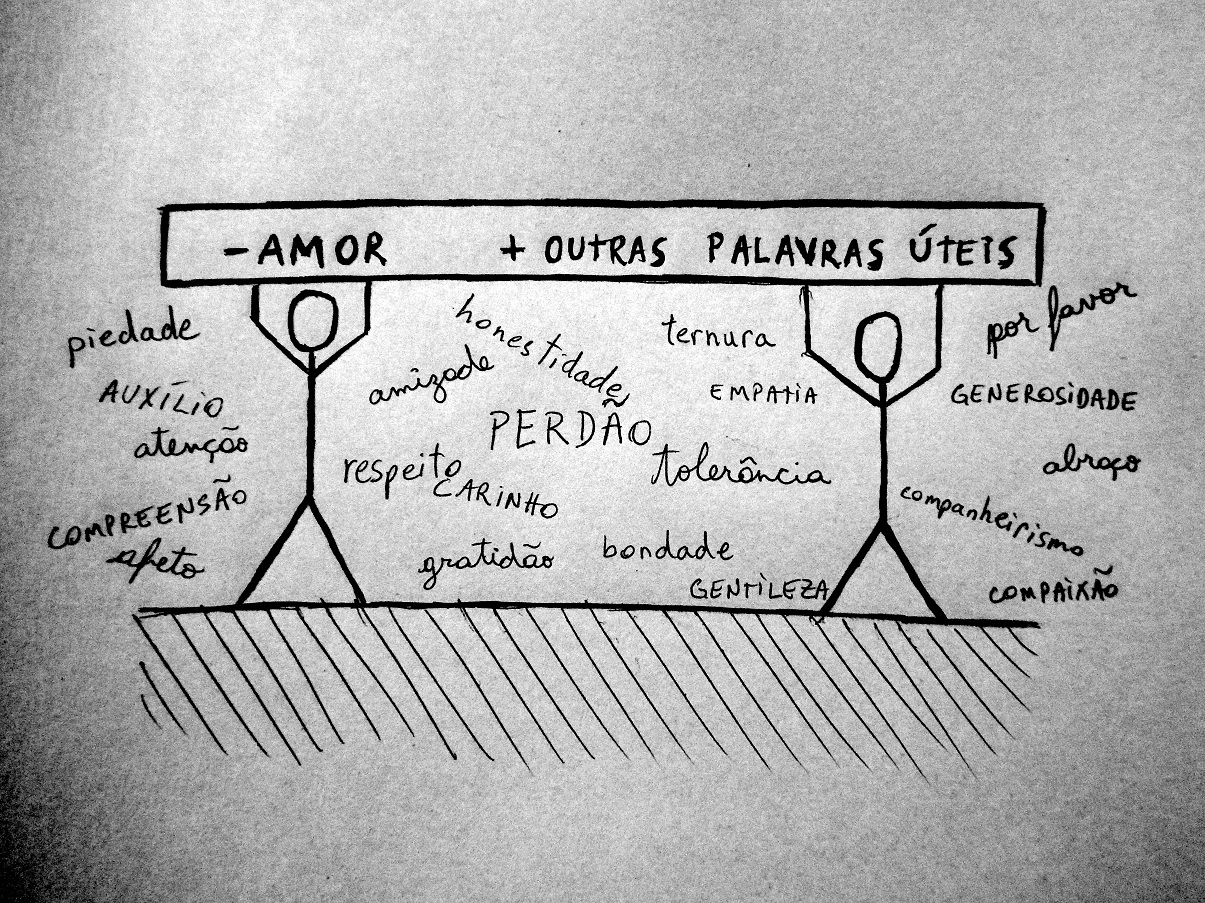 - AMOR + OUTRAS PALAVRAS ÚTEIS
piedade
AUXÍLIO
atenção
COMPREENSÃO
afeto
honestidade
amizade
PERDÃO
respeito
CARINHO
gratidão
ternura
EMPATIA
tolerância
bondade
GENTILEZA
por favor
GENEROSIDADE
abraço
companheirismo
COMPAIXÃO